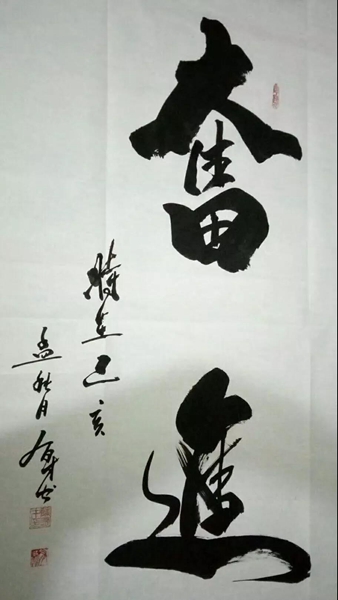 奮進
時在己亥
孟秋月